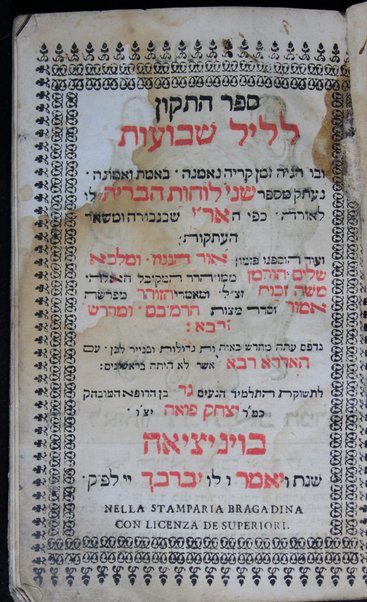 ספר התקון
לליל שבועות
ובו יהיה זמן קריה נאמנה · באמת ואמונה ·
נעתק מספר שני לוחות הברית לו
לאורה · כפי האר״י שבגבורה ומשאר
העתקות:
ועוד הוספנו פזמון אור הגנוז · ומלכא
שלים · הורמן ממוהרר המקובל האלהי
משה זכות זצ״ל · ומאמרי הזוהר מפרשה
אמור וסדר מצות הרמב״ם · ומדרש
רבא:
נדפס עתה מחדש באותיות גדולות ובנייר לבן · עם
האדרא רבא אשר לא היתה בראשונים:
לתשוקת התלמיד הנעים גד בן הרופא המובהק
כמ״ר יצחק פואה יצ״ו ·
בויניציאה
שנת ויאמר לו יברכך יי לפ״ק ·
NELLA STAMPARIA BRAGADINA
CON LICENZA DE SUPERIORI.